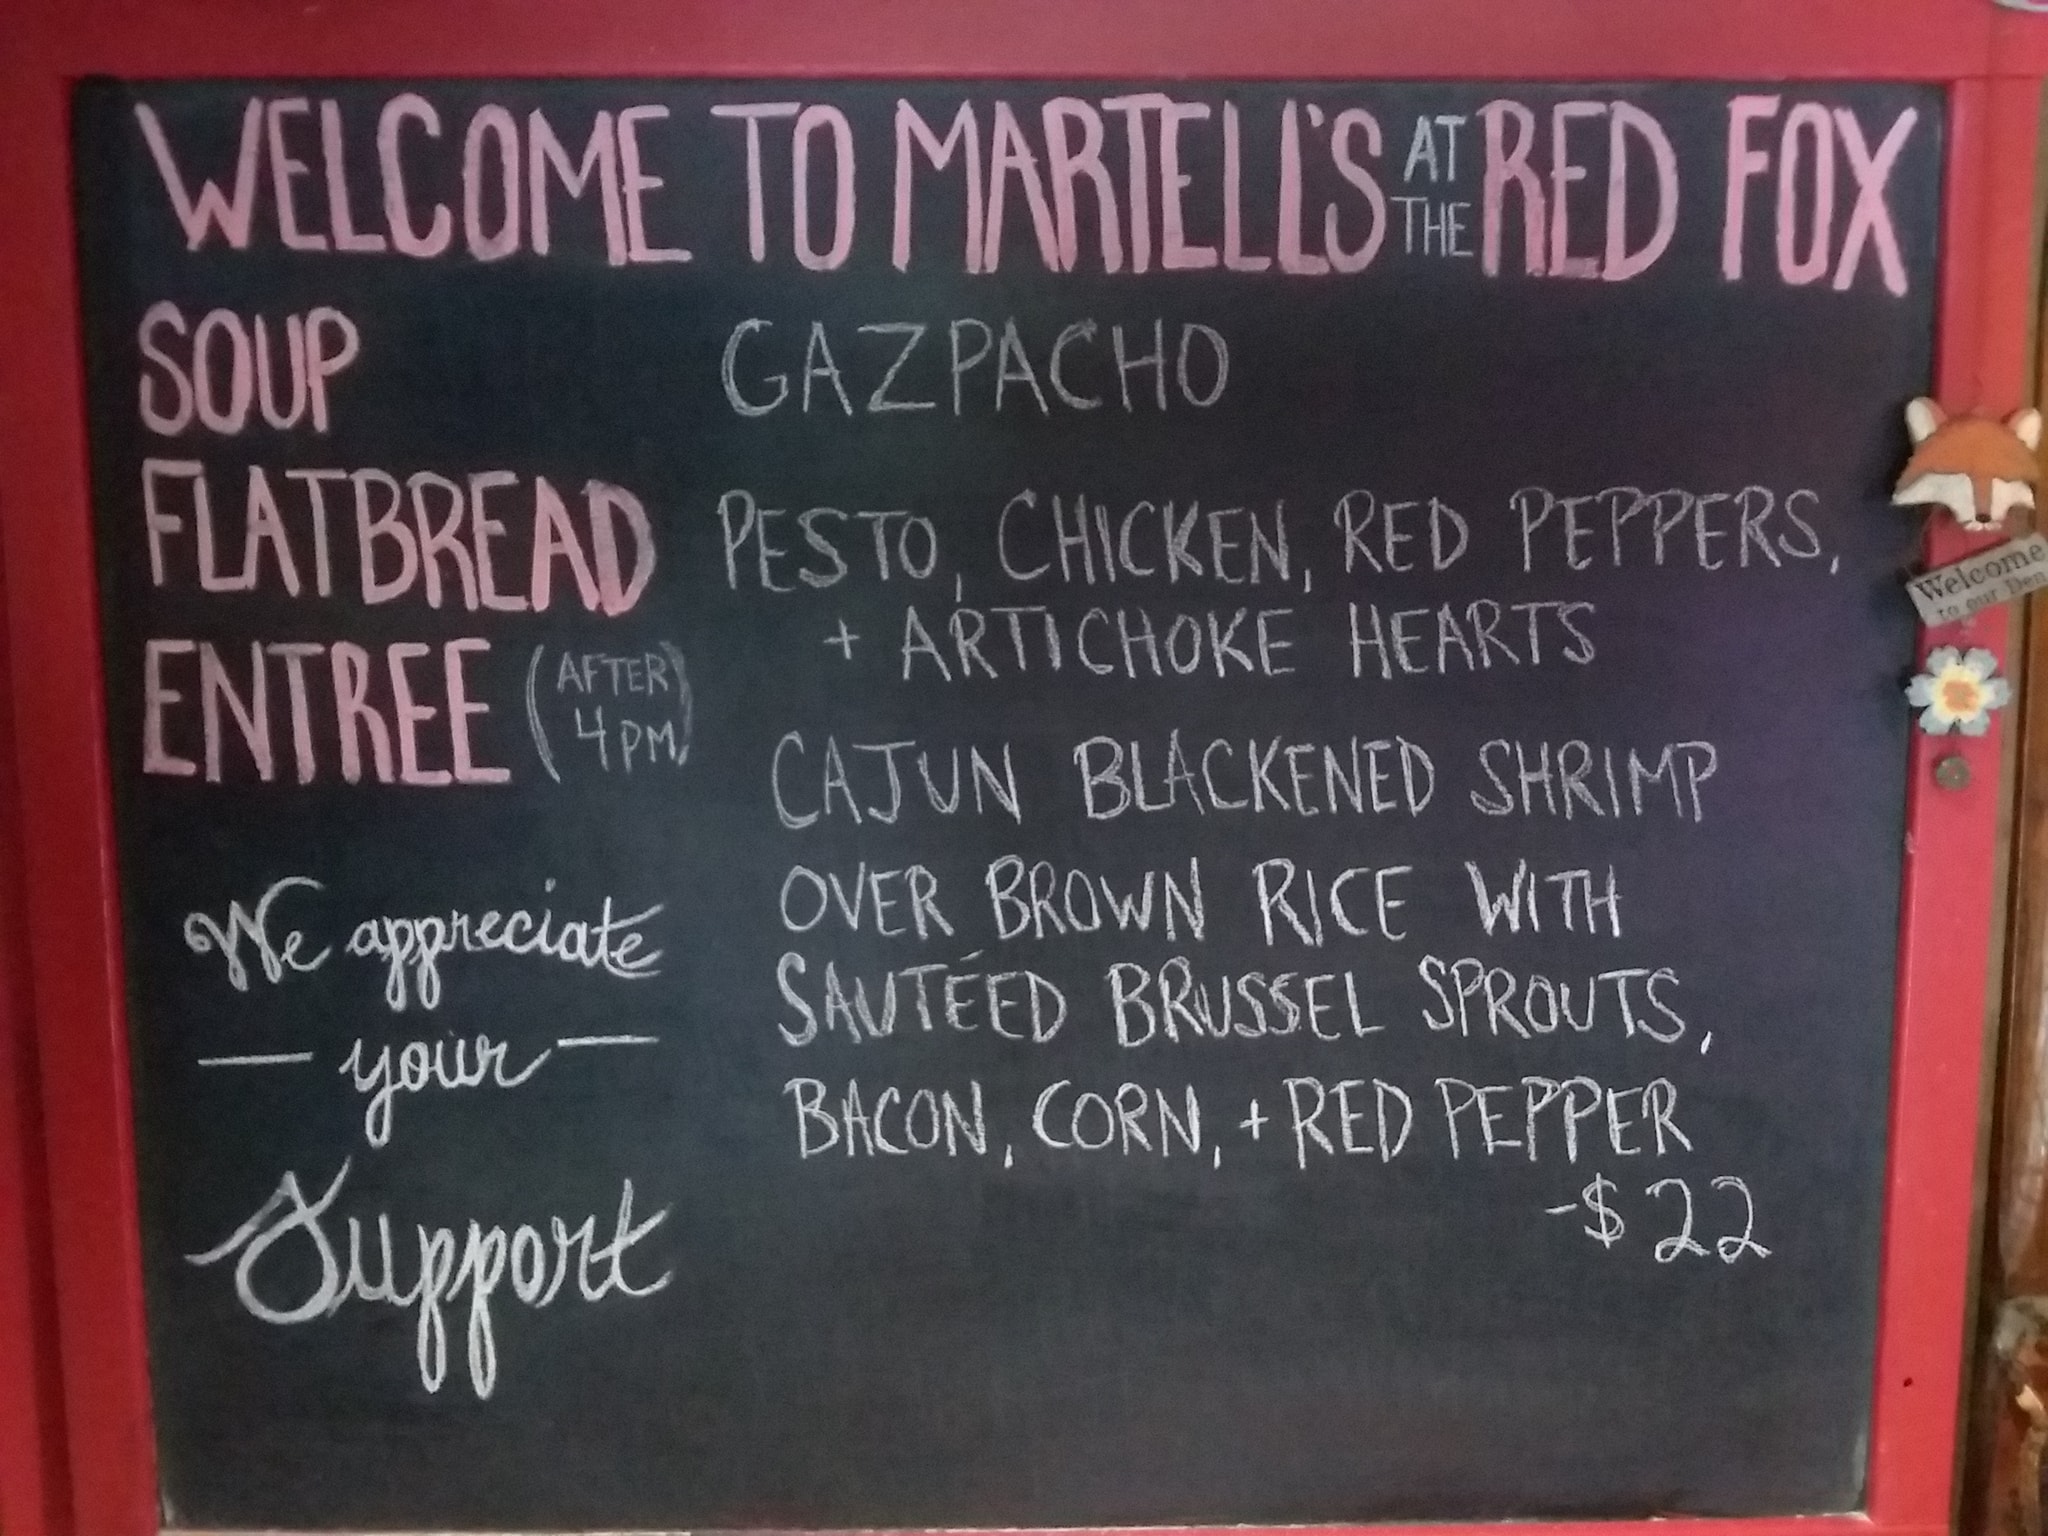 WELCOME TO MARTELL'S AT THE RED FOX
SOUP GAZPACHO
FLATBREAD PESTO, CHICKEN, RED PEPPERS,
+ ARTICHOKE HEARTS
ENTREE (AFTER 4PM)
CAJUN BLACKENED SHRIMP
OVER BROWN RICE WITH
SAUTÉED BRUSSEL SPROUTS,
BACON, CORN, + RED PEPPER
-$22
We appreciate
— your —
Support
Welcome
to our Den